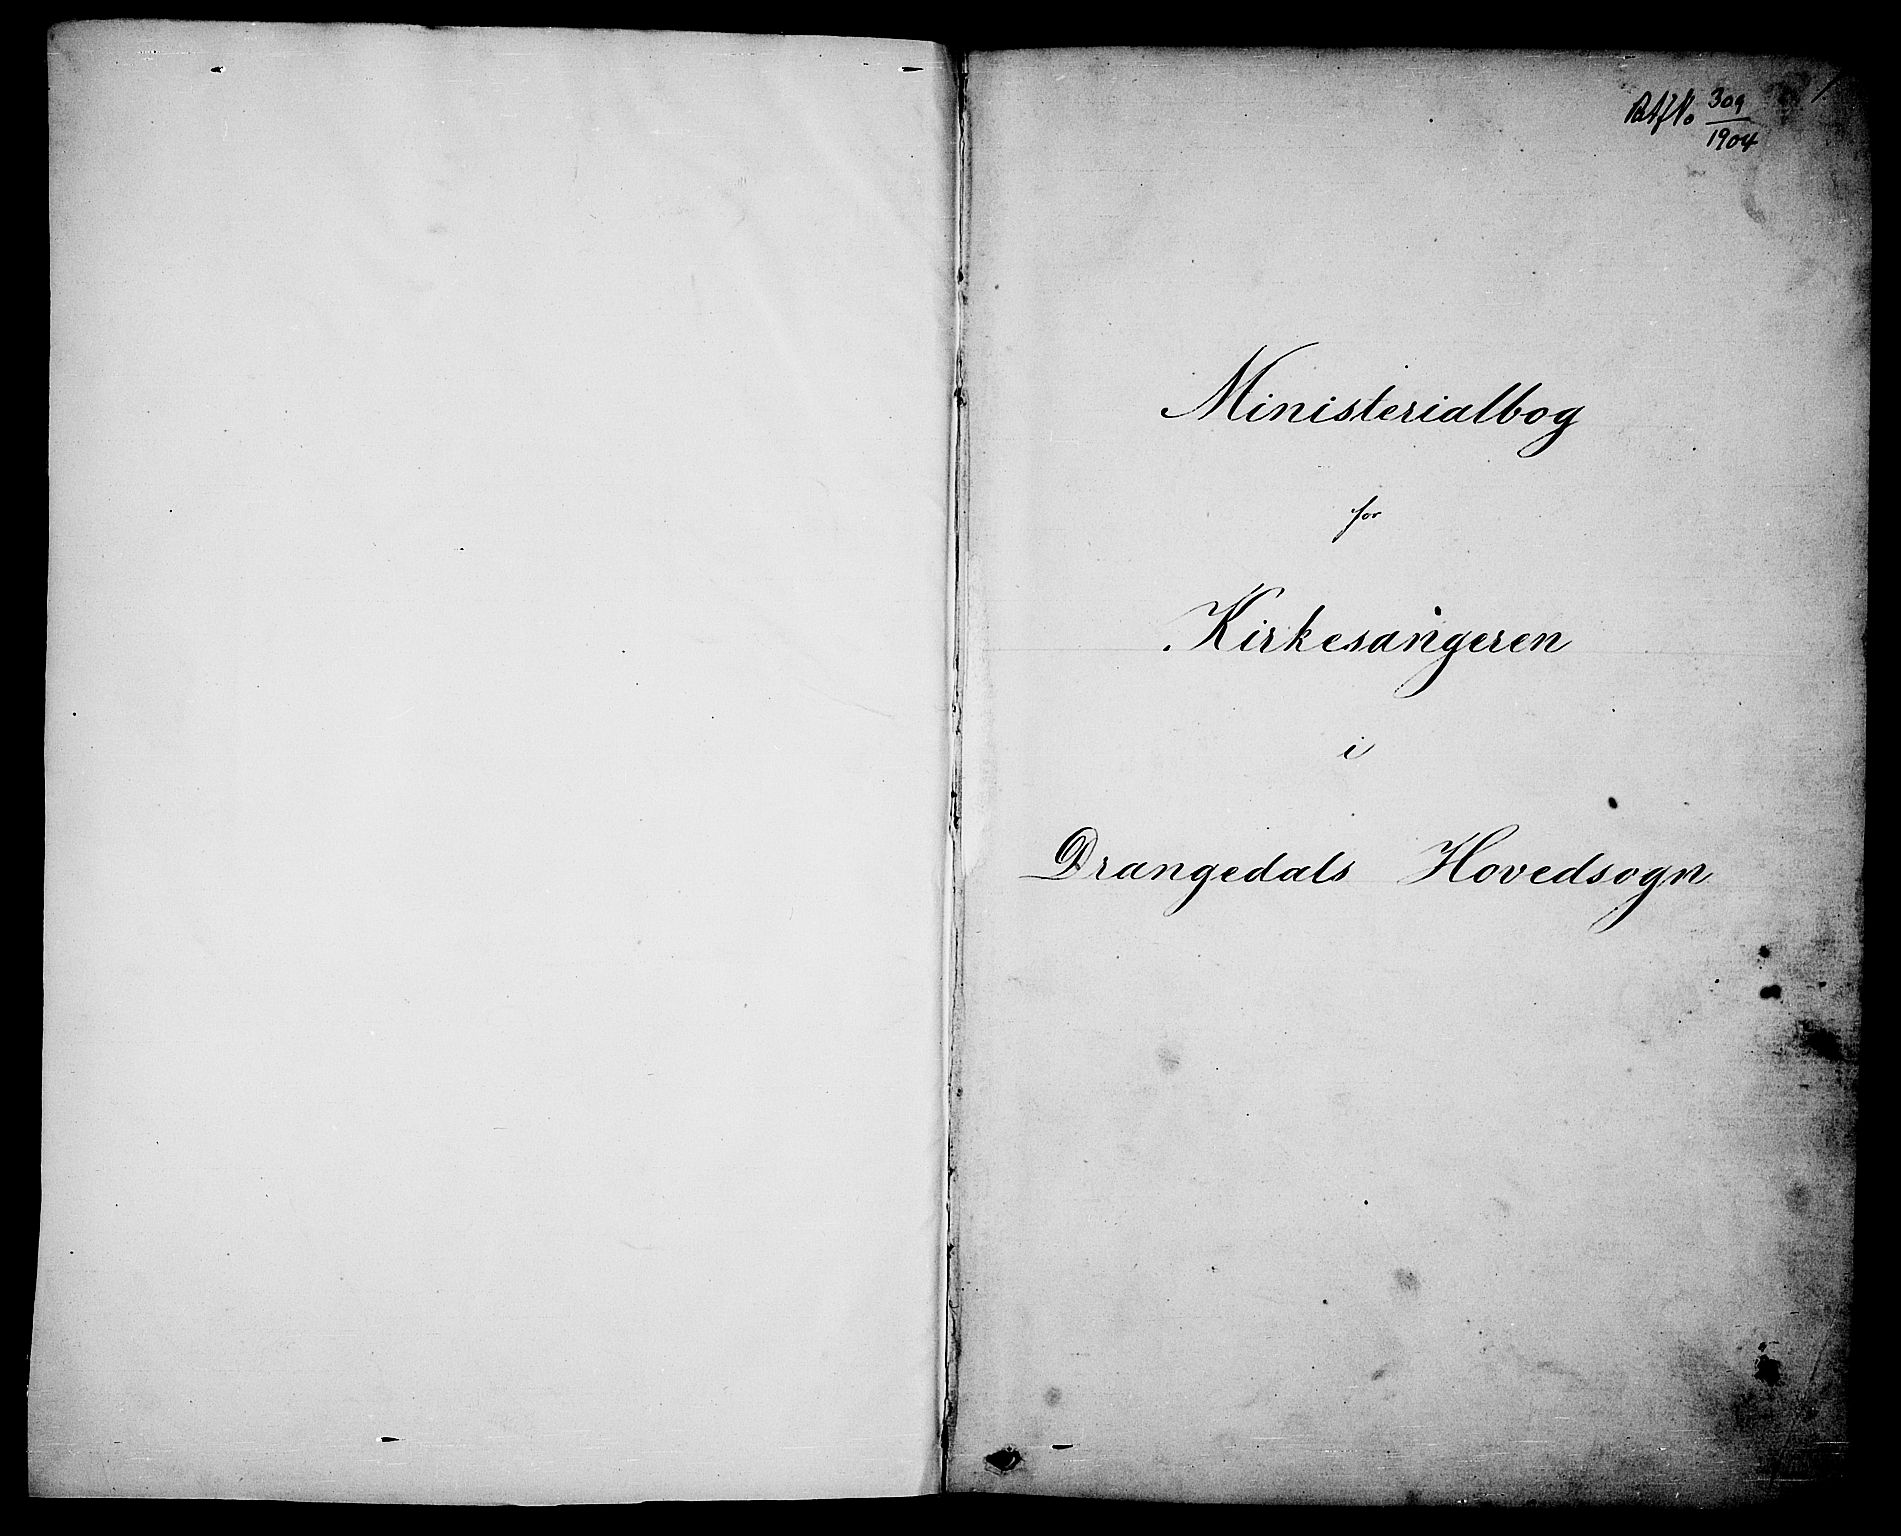 1
309
1904
Ministerialbog
for
Kirkesangeren
i
Drangedals Hovedsogn